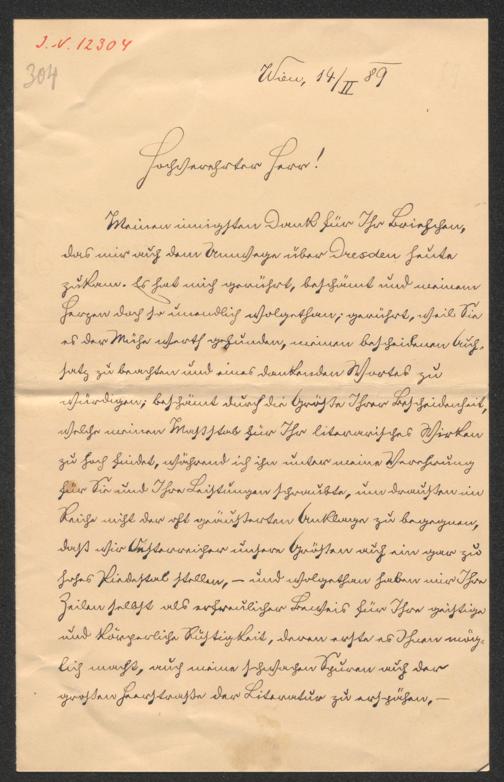 J. N. 12304
304
Wien, 14/II 89
Hochverehrter Herr!
Meinen innigsten Dank für Ihr Briefchen,
das mir auf dem Umwege über Dresden heute
zukam. Es hat mich gerührt, beschämt und meinem
Herzen doch so unendlich wolgethan; gerührt, weil Sie
es der Mühe werth gefunden, meinen bescheidenen Auf-
satz zu beachten und eines dankenden Wortes zu
würdigen; beschämt durch die Größe Ihrer Bescheidenheit,
welche meinen Maßstab für Ihr literarisches Wirken
zu hoch findet, während ich ihn unter meine Verehrung
für Sie und Ihre Leistungen schraubte, um draußen im
Reiche nicht der oft geäußerten Anklage zu begegnen,
daß wir Oesterreicher unsere Größen auf ein gar zu
hohes Piedestal stellen, — und wolgethan haben mir Ihre
Zeilen selbst als erfreulicher Beweis für Ihre geistige
und körperliche Rüstigkeit, deren erste es Ihnen mög-
lich macht, auch meine schwachen Spuren auf der
großen Heerstraße der Literatur zu erspähen, —